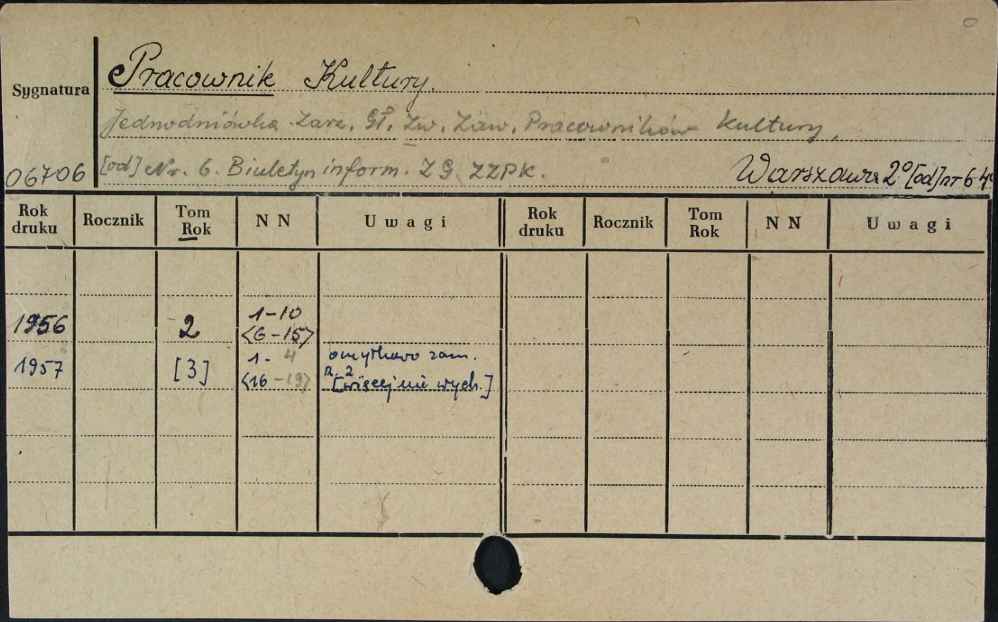 Sygnatura
Pracownik Kultury.
Jednodniówka Zarz. Gł. Zw. Zaw. Pracowników Kultury,
06706 [od] Nr. 6. Biuletyn inform. ZG ZZPK. Warszawa 2° [od] nr 6 4°
Rok druku Rocznik Tom Rok N N Uwagi Rok druku Rocznik Tom Rok N N Uwagi
1956 2 1-10
<6-15>
1957 [3] 1-4 omyłkowo zam.
<16-19> R. 2
[więcej nie wych.]